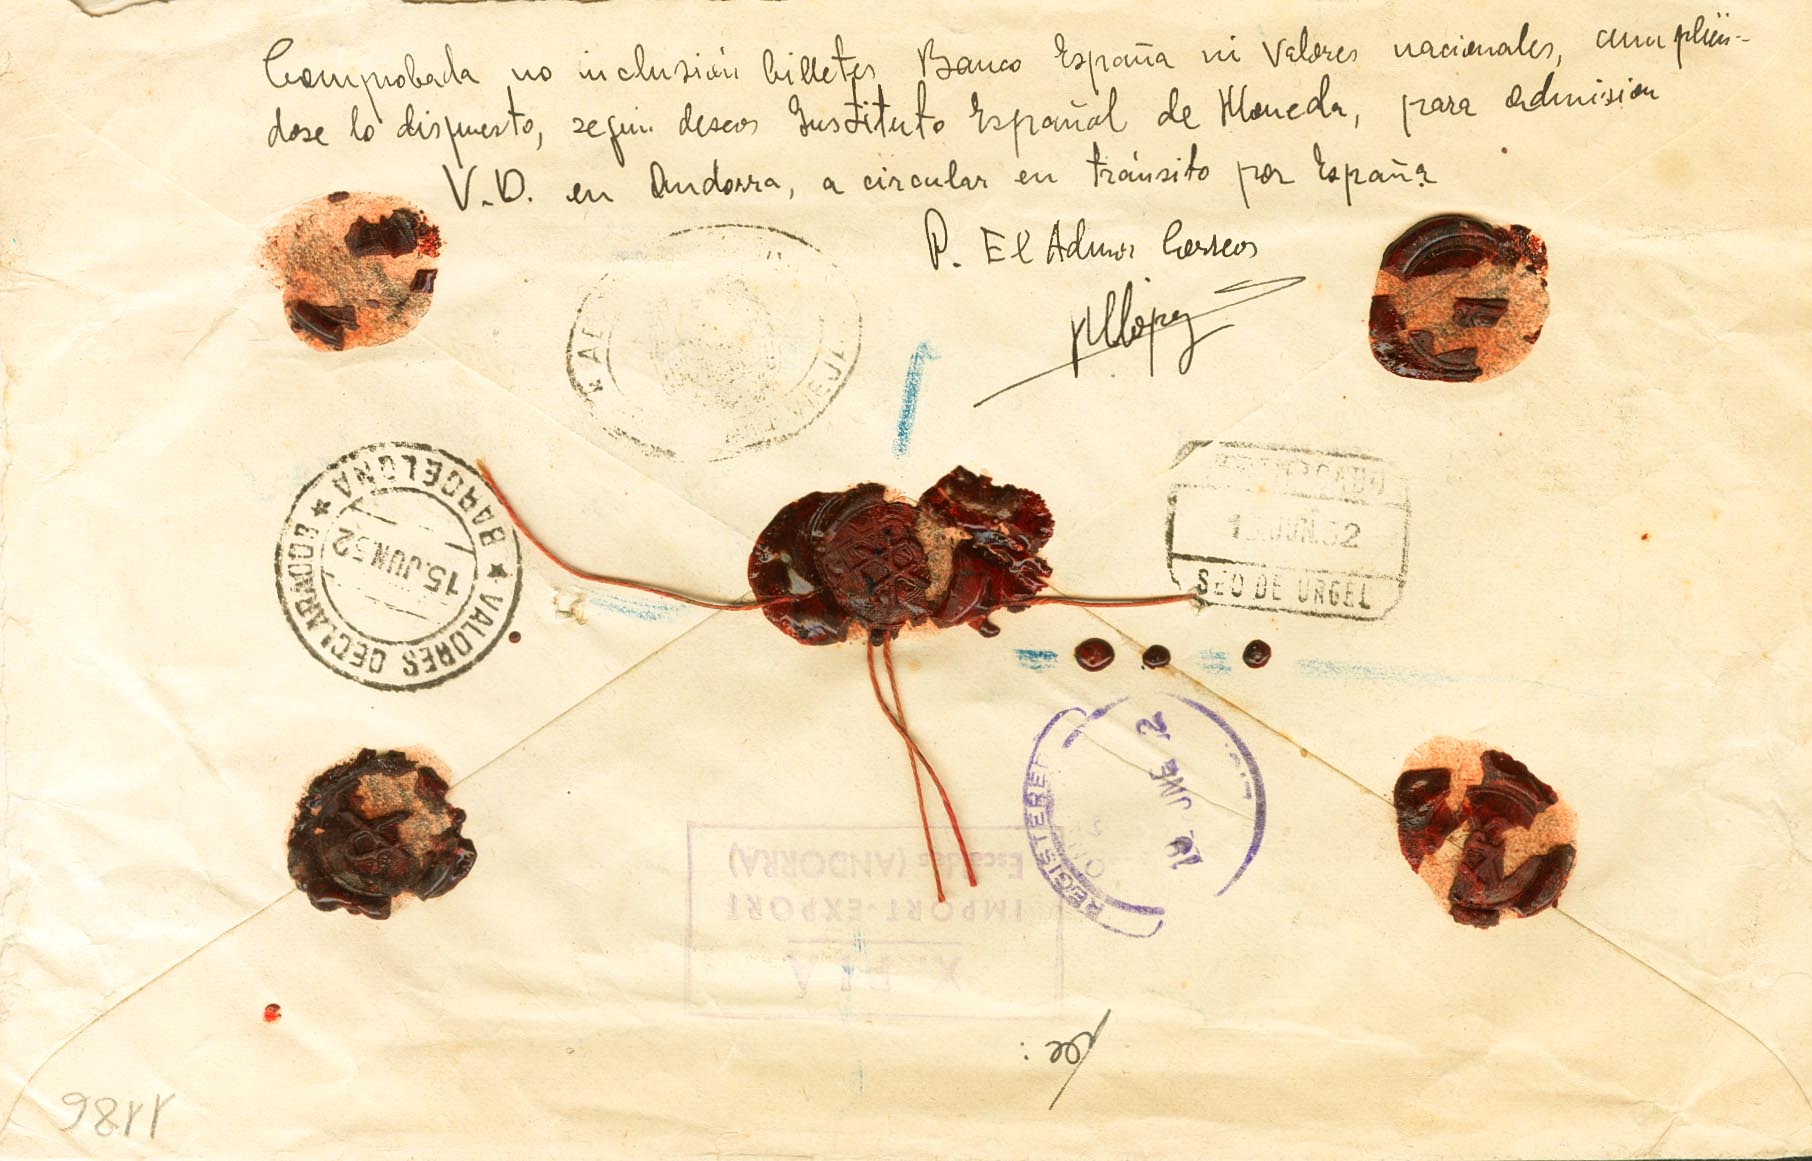 Comprobada no inclusión billetes Banco España ni Valores nacionales, cumplién-
dose lo dispuesto, según deseos Instituto Español de Moneda, para admisión
V.D. en Andorra, a circular en tránsito por España
P. El Admor Correos
MLópez
★ BARCELONA ★ VALORES DECLARADOS
15.JUN.52
JUN.52
SEO DE URGEL
REGISTERED
19 JNE 2
X. PLA
IMPORT-EXPORT
Escaldes (ANDORRA)
de: